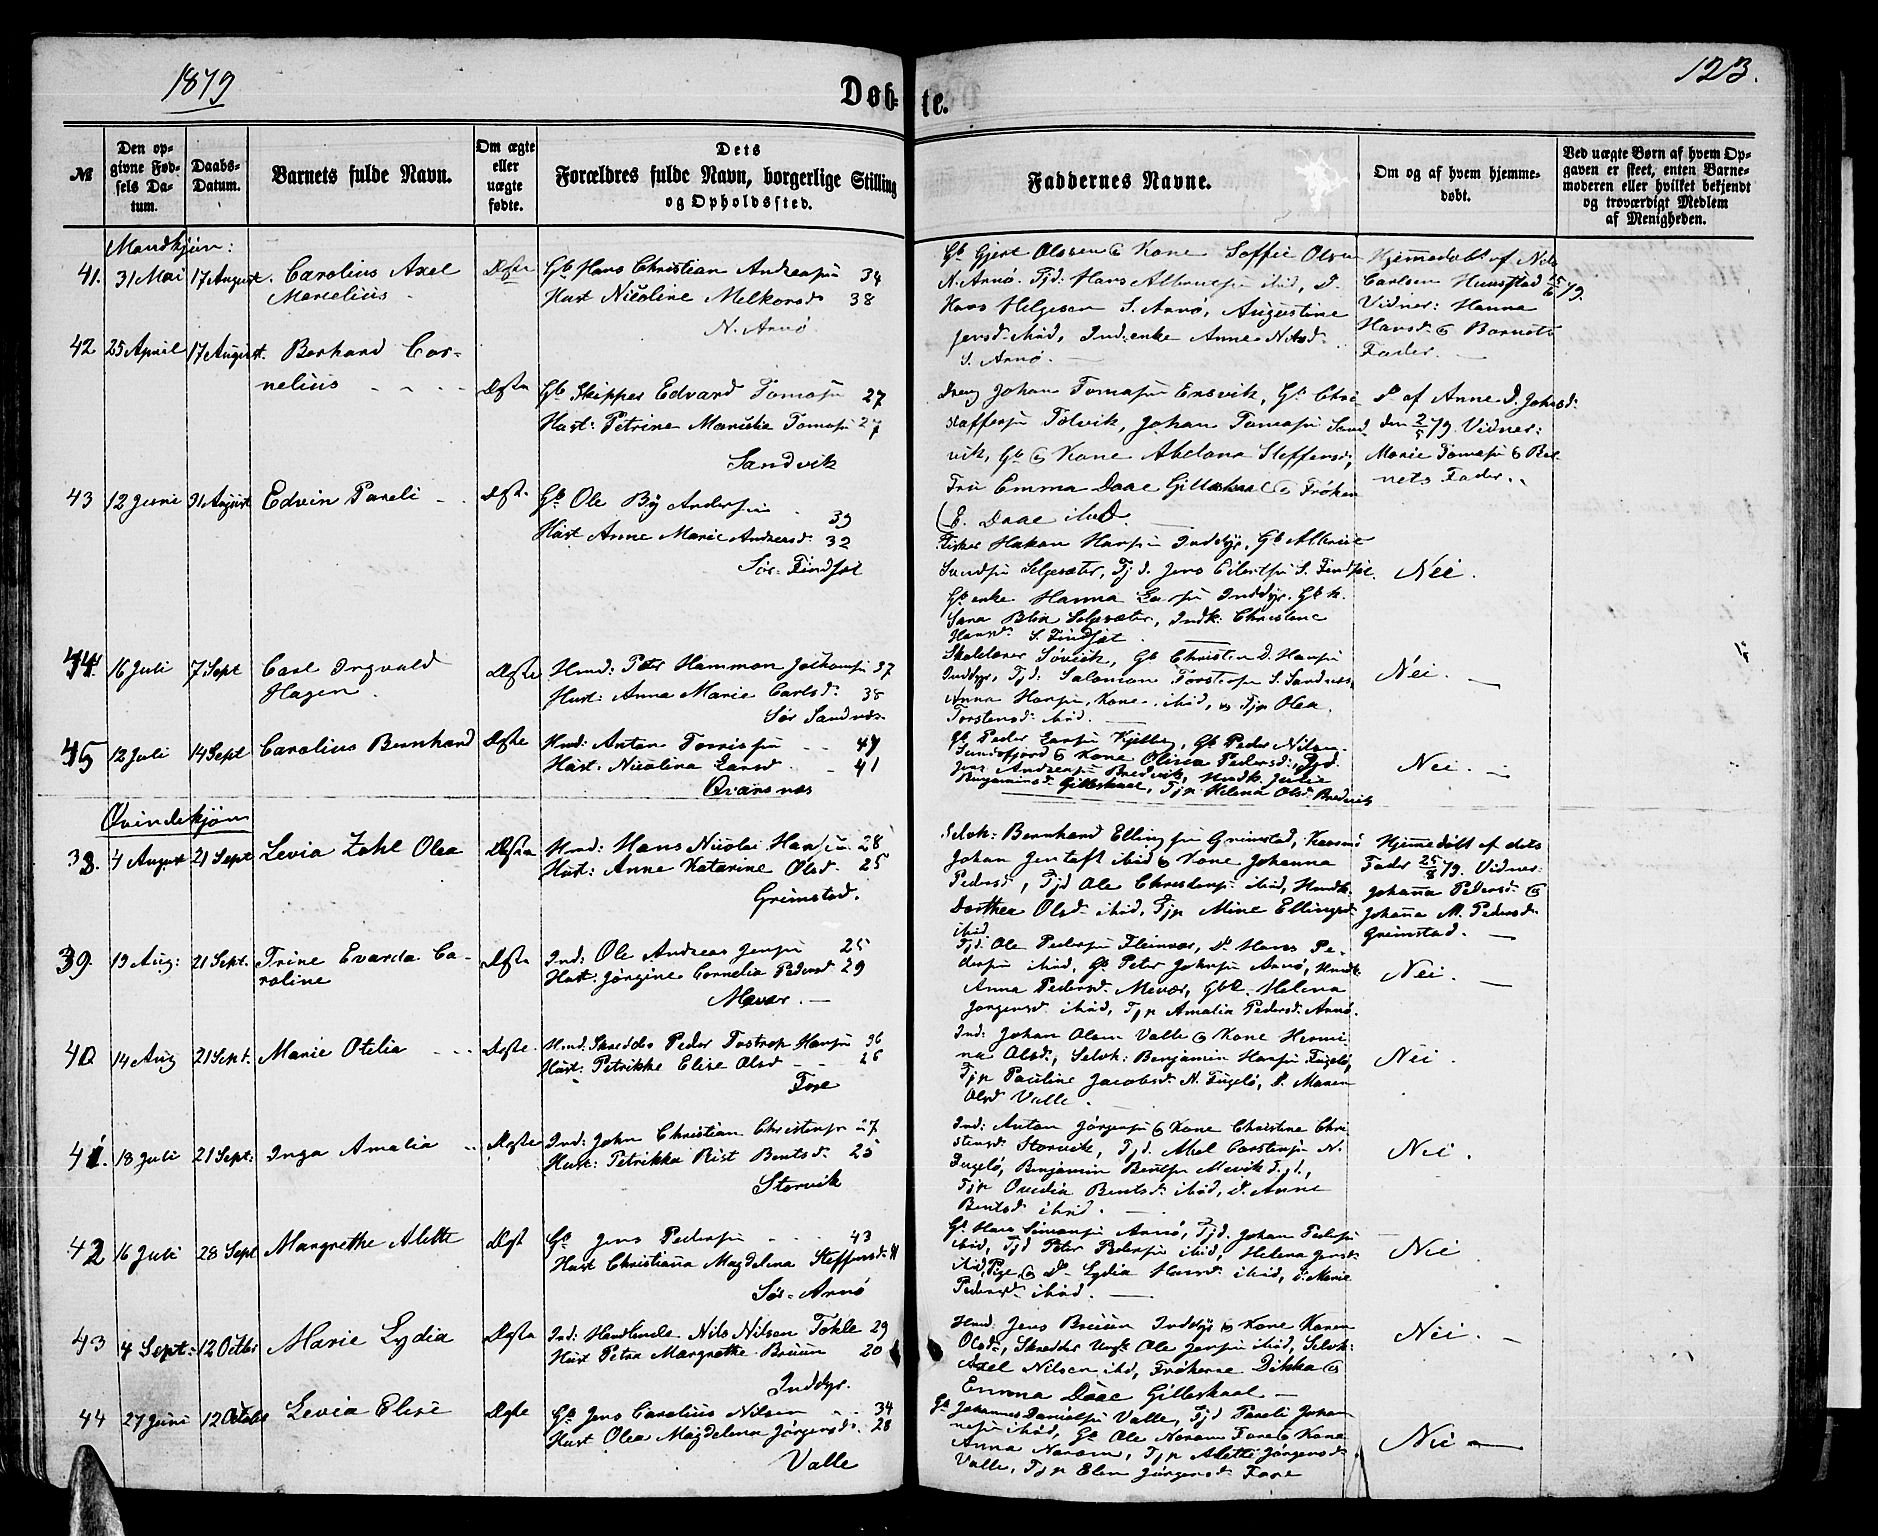 1879
Døb-
te.
123.
№
Den op-
givne Fød-
sels Da-
tum.
Daabs-
Datum.
Barnets fulde Navn.
Om ægte
eller
uægte
fødte.
Dets
Forældres fulde Navn, borgerlige Stilling
og Opholdssted.
Faddernes Navne.
Om og af hvem hjemme-
døbt.
Ved uægte Børn af hvem Op-
gaven er skeet, enten Barne-
moderen eller hvilket bekjendt
og troværdigt Medlem
af Menigheden.
Mandkjøn:
41. 31 Mai 17 August. Carolius Axel
Marselius
Ægte
Gb Hans Christian Andreasen 34
Hust Nicoline Melkorsd 38
N. Arnø.
Gb. Gjert Olssen & Kone Soffie Olsen
N. Arnø. Tjd: Hans Albrigtsen ibid, D.
Hans Helgesen S. Arnø, Augustine
Jensd ibid, Ind: enke Anne Nilsd
S. Arnø.
Hjemmedøbt af Nils
Carlsen Hunstad 15/6 79.
Vidner: Hanna
Hansd. & Barnets
Fader.
42. 25 April 17 August. Berhard Cor-
nelius
Ægte
Gb Skipper Edvard Tomasen 27
Hust: Petrine Tomasen 27
Sandvik
Dreng Johan Tomasen Ersvik, Gb. Chri-
staffersen Tolvik, Johan Tomasen Sand-
vik, Gb & Kone Abelona Steffensd,
Fru Emma Daae Gilleskaal & Frøken
E. Daae ibid.
D. af Anne D. Johnsd:
den 2/5 79. Vidner:
Marie Tomasen & Bar-
nets Fader.
43 12 Juni 31 August Edvin Pareli
Ægte
Gb Ole By Andersen 39
Hust Anne Marie Andersd. 32
Sør-Findset
Fisker Hakon Hansen Inddyr, Gb Albrigt
Sundsen Selsæter, Tjd. Jens Eilertsen S. Findset.
Gb enke Hanna Larsen Inddyr. Gb k.
Sara Blix Selsæter, Indk: Christine
Hansd. S. Findset.
Nei.
44. 16 Juli 7 Sept Carl Ingvald
Hagen.
Ægte
Hmd: Peter Hammon Joakimsen 37
Hust: Anna Marie Carlsd. 38
Sør Sandnæs
Skolelærer Søvik, Gb Christen D. Hansen
Inddyr, Tjd: Salomon Torstensen S. Sandnæs,
Anna Hansen, Kone ibid, & Tjp Olea
Torstensd. ibid.
Nei.
45 12 Juli 14 Sept Carolius Bernhard
Ægte
Hmd: Anton Torrissen 47
Hust: Nicolina Larsd 41
Qvarsnæs
Gb Peder Larsen Kjelling, Gb. Peder Nilsen
Sundsfjord & Kone Olivia Pedersd, Tjd.
Jens Andreasen Bredvik, Hmdk. Julie
Benjaminsd Gilleskaal, Tjp Helena Olsd. Bredvik
Nei.
Qvindekjøn
38. 4 August 21 Sept Levia Zahl Olea
Ægte
Hmd: Hans Nicolai Hansen 28
Hust: Anne Katarine Olsd. 25
Grimstad.
Selvk: Bernhard Ellingsen Grimstad,
Johan Jentoft ibid & Kone Johanna
Pedersd, Tjd Ole Christensen ibid, Hmdk.
Dorthea Olsd. ibid, Tjp Mine Ellingsd
ibid.
Hjemmedøbt af dets
Fader 25/8 79. Vidner:
Johanna Pedersd. &
Johanna M. Pedersd.
Grimstad.
39. 19 Aug: 21 Sept. Trine Evarda Ca-
roline
Ægte
Ind: Ole Andreas Jensen 25
Hust. Jørgine Cornelia Pedersd 29
Mevær.
Tjd. Ole Pedersen Fleinvær, D. Hans Pe-
dersen ibid, Gb Peter Johnsen Arnø, Hmdk.
Anna Pedersd. Mevær, Helena
Jørgensd. ibid, Tjp Amalia Pedersd. Arnø.
Nei.
40 14 Aug 21 Sept. Marie Otelia
Ægte.
Hmd. Skredder Peder Tostrop Hansen 36
Hust: Petrikke Elise Olsd 26
Fore
Ind: Johan Olsen Valle & Kone Hermi-
na Olsd, Selvk: Benjamin Hansen Fugelø,
Tjp Pauline Jacobsd. N. Fugelø, D. Maren
Olsd Valle.
Nei.
41. 18 Juli 21 Sept: Inga Amalia
Ægte
Ind: John Christian Christensen 27
Hust: Petrikka Rist Bentsd. 25
Storvik
Ind: Anton Jørgensen & Kone Christine Chri-
stensd. Storvik, Tjd. Abel Carstensen N.
Fugelø, Benjamin Bentsen Mevik Tjd,
Tjp Ovedia Bentsd. ibid, D. Anne
Bentsd. ibid.
Nei.
42 16 Juli 28 Sept Margrethe Alette
Ægte
Gb Jens Pedersen 43
Hust Christianna Magdelena Steffensd. 41
Sør-Arnø
Gb Hans Simonsen Arnø, Tjd. Johan Pedersen
ibid, Tjd Peter Pedersen ibid, Helena Jensd.
ibid, Pige & D. Lydia Hansd. ibid, D. Marie
Pedersd. ibid.
Nei
43 4 Sept: 12 Octbr Marie Lydia
Ægte
Ind: Handlende Nils Nilsen Tokle 29
Hust Petra Margrethe Bruun 20
Inddyr.
Hmd: Jens Bruun Inddyr & Kone Karen
Olsd., Skredder Ungk. Ole Jensen ibid, Selvk:
Axel Nilsen ibid, Frøkerne Dikka &
Emma Daae Gilleskaal
Nei.
44 27 Juni 12 Octobr Levia Elise
Ægte
Gb. Jens Carolius Nilsen 34
Hust Olea Magdelena Jørgensd. 28
Valle
Gb. Johannes Danielsen Valle, Tjd Pareli Johan-
nesen ibid, Gb Ole Norum Fore & Kone
Anna Norum, Tjp Alette Jørgensd
Valle, Tjp Elen Jørgensd. Fore
Nei